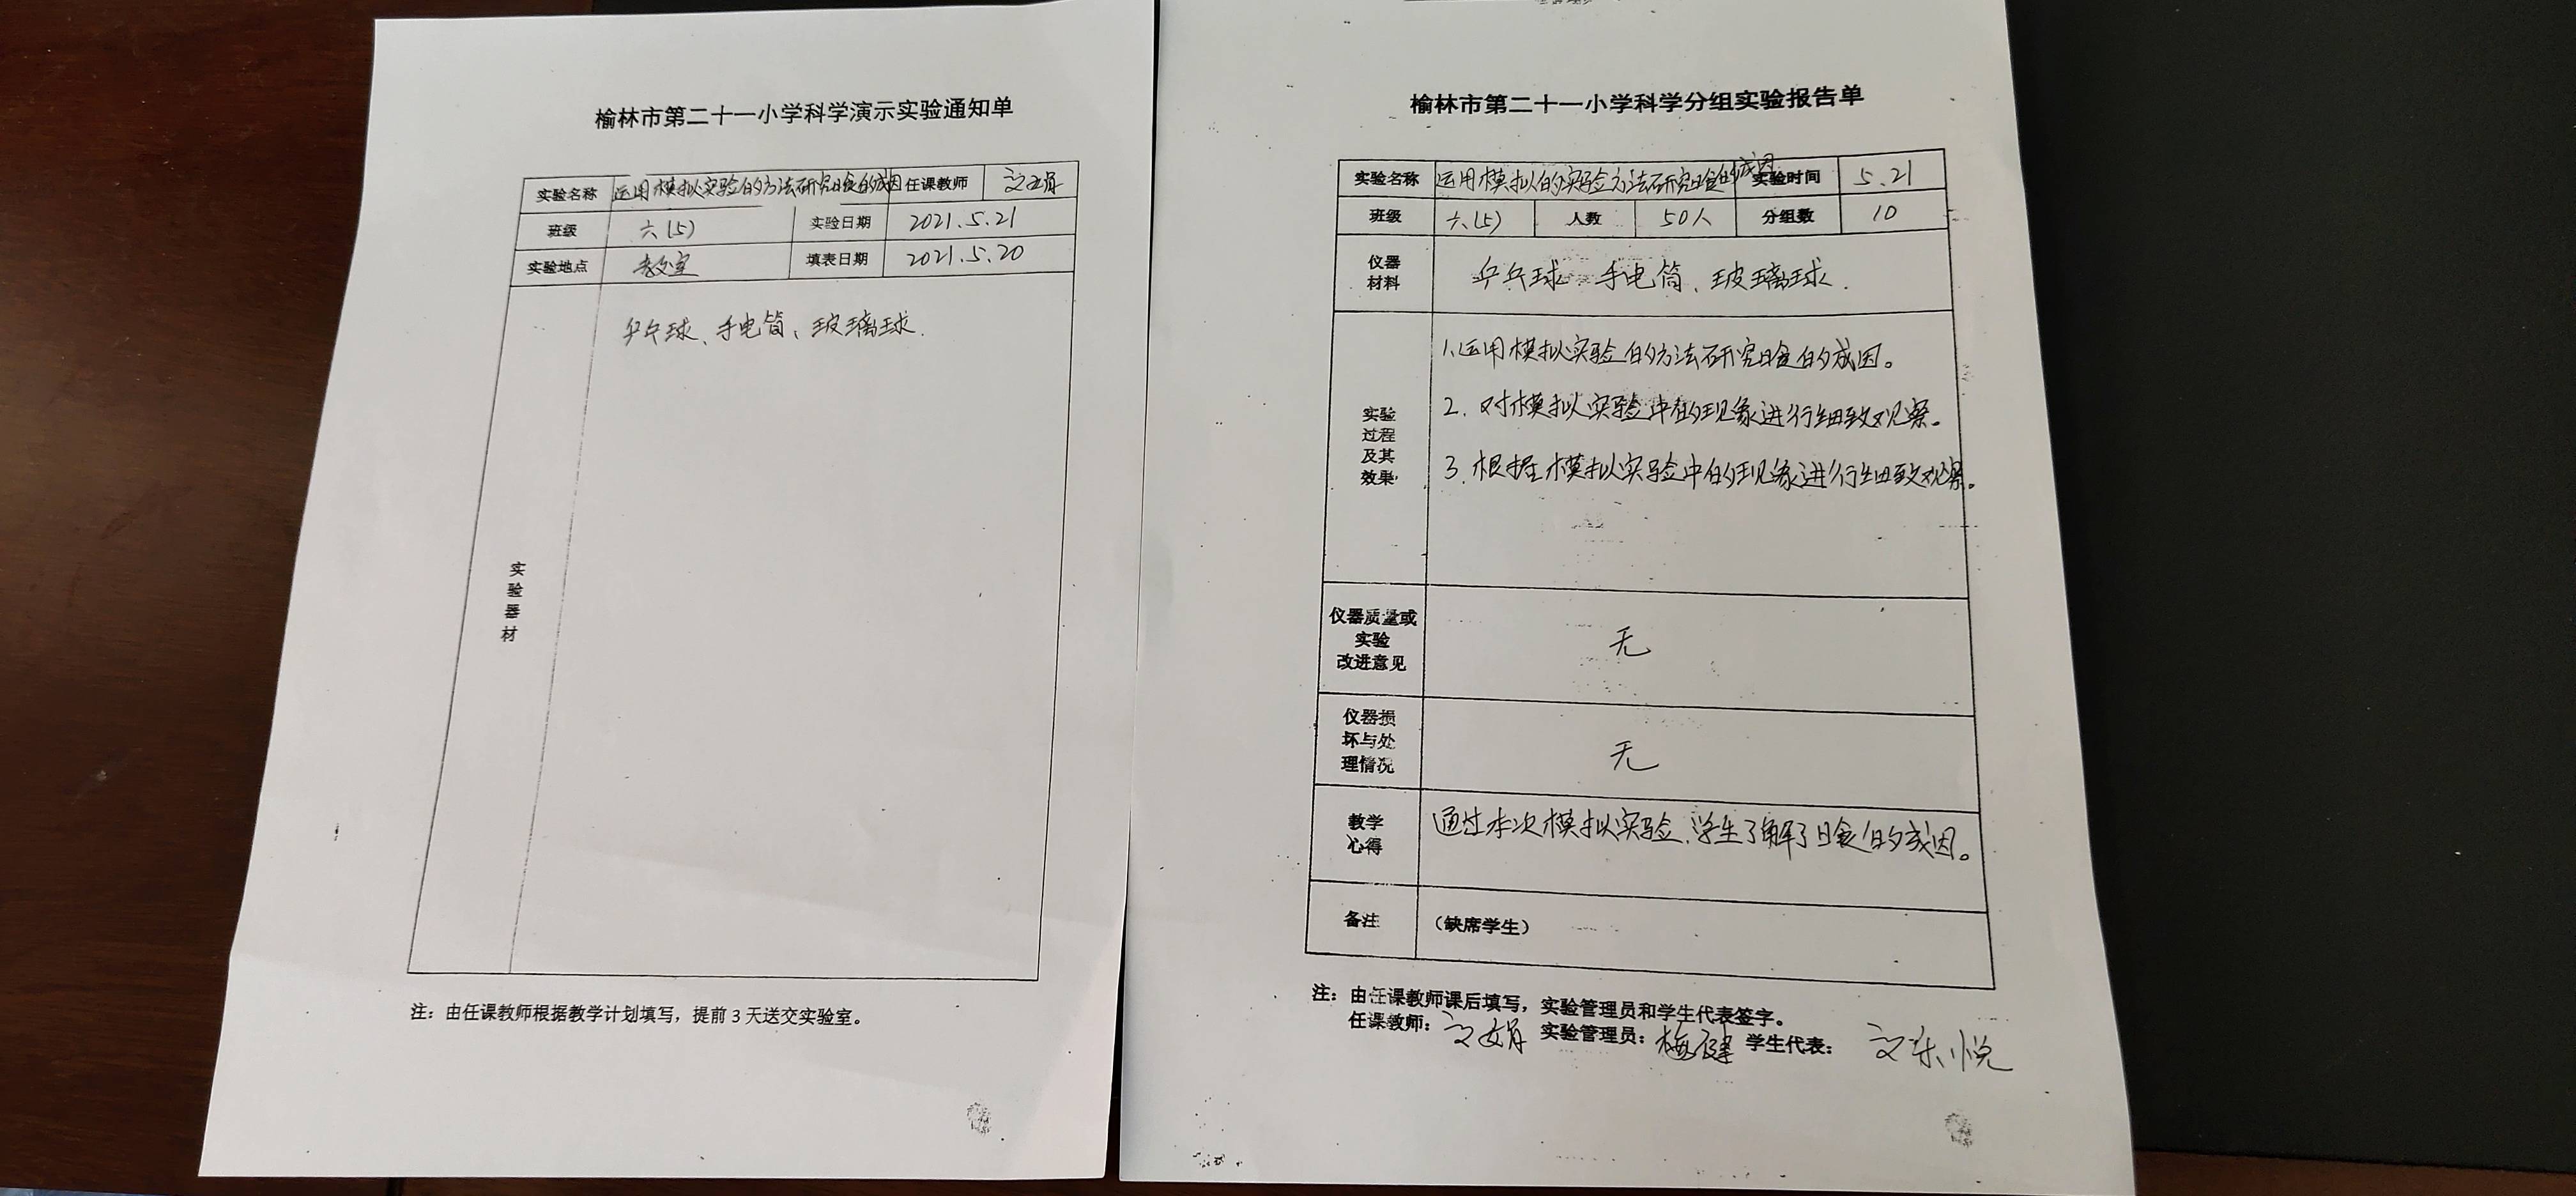 榆林市第二十一小学科学演示实验通知单
实验名称 运用模拟实验的方法研究日食的成因 任课教师
班级 六(5) 实验日期 2021.5.21
实验地点 教室 填表日期 2021.5.20
实验器材 乒乓球、手电筒、玻璃球.
注：由任课教师根据教学计划填写，提前3天送交实验室。
榆林市第二十一小学科学分组实验报告单
实验名称 运用模拟的实验方法研究日食的成因 实验时间 5.21
班级 六(5) 人数 50人 分组数 10
仪器材料 乒乓球 手电筒、玻璃球.
实验过程及其效果
1.运用模拟实验的方法研究日食的成因。
2.对模拟实验中的现象进行细致观察。
3.根据模拟实验中的现象进行细致观察。
仪器质量或实验改进意见 无
仪器损坏与处理情况 无
教学心得 通过本次模拟实验,学生了解了日食的成因。
备注 （缺席学生）
注：由任课教师课后填写，实验管理员和学生代表签字。
任课教师： 实验管理员：梅健 学生代表：